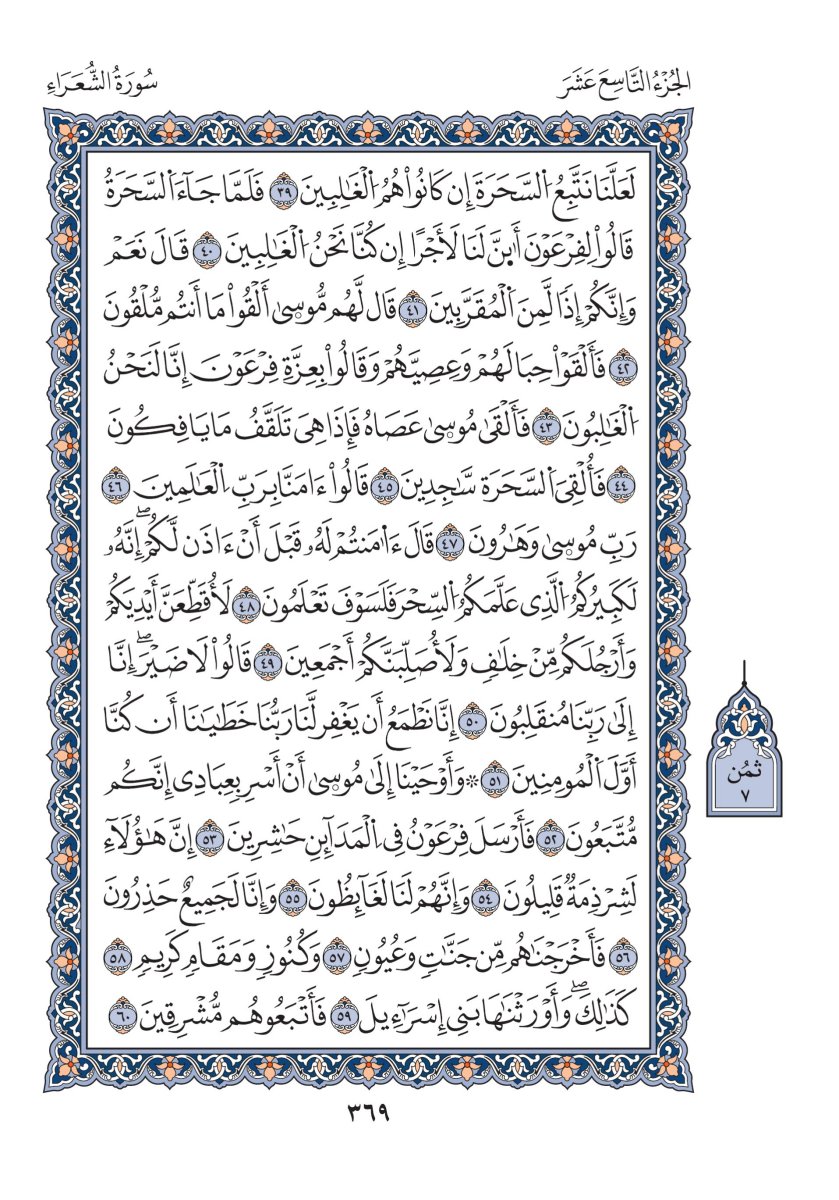 الجُزْءُ التَّاسِعَ عَشَرَ
سُورَةُ الشُّعَرَاءِ
لَعَلَّنَا نَتَّبِعُ اُ۬لسَّحَرَةَ إِن كَانُواْ هُمُ اُ۬لْغَٰلِبِينَ ٣٩ فَلَمَّا جَآءَ اَ۬لسَّحَرَةُ
قَالُواْ لِفِرْعَوْنَ أَي۪نَّ لَنَا لَأَجْرًا إِن كُنَّا نَحْنُ اُ۬لْغَٰلِبِينَ ٤٠ قَالَ نَعَمْ
وَإِنَّكُمْ إِذَا لَّمِنَ اَ۬لْمُقَرَّبِينَ ٤١ قَال لَّهُم مُّوسۭيٰ أَلْقُواْ مَا أَنتُم مُّلْقُونَ
٤٢ فَأَلْقَوْاْ حِبَالَهُمْ وَعِصِيَّهُمْ وَقَالُواْ بِعِزَّةِ فِرْعَوْنَ إِنَّا لَنَحْنُ
اُ۬لْغَٰلِبُونَ ٤٣ فَأَلْقَىٰ مُوسۭىٰ عَصَاهُ فَإِذَا هِىَ تَلَقَّفُ مَا يَافِكُونَ
٤٤ فَأُلْقِىَ اَ۬لسَّحَرَة سَّٰجِدِينَ ٤٥ قَالُواْ ءَامَنَّا بِرَبِّ اِ۬لْعَٰلَمِينَ ٤٦
رَبِّ مُوسۭىٰ وَهَٰرُونَ ٤٧ قَالَ ءَا۬مَنتُمْ لَهُۥ قَبْلَ أَنْ ءَاذَن لَّكُمْۖ إِنَّهُۥ
لَكَبِيرُكُمُ اُ۬لَّذِى عَلَّمَكُمُ اُ۬لسِّحْرَ فَلَسَوْفَ تَعْلَمُونَ ٤٨ لَأُقَطِّعَنَّ أَيْدِيَكُمْ
وَأَرْجُلَكُم مِّنْ خِلَٰفٍ وَلَأُصَلِّبَنَّكُمْ أَجْمَعِينَ ٤٩ قَالُواْ لَا ضَيْرَۖ إِنَّا
إِلَىٰ رَبِّنَا مُنقَلِبُونَ ٥٠ إِنَّا نَطْمَعُ أَن يَغْفِر لَّنَا رَبُّنَا خَطَٰيَٰنَا أَن كُنَّا
أَوَّلَ اَ۬لْمُومِنِينَ ٥١ ۞وَأَوْحَيْنَا إِلَىٰ مُوسۭىٰ أَنْ أَسْرِ بِعِبَادِى إِنَّكُم
مُّتَّبَعُونَ ٥٢ فَأَرْسَلَ فِرْعَوْنُ فِى اِ۬لْمَدَآئِنِ حَٰشِرِينَ ٥٣ إِنَّ هَٰؤُلَآءِ
لَشِرْذِمَةٌ قَلِيلُونَ ٥٤ وَإِنَّهُمْ لَنَا لَغَآئِظُونَ ٥٥ وَإِنَّا لَجَمِيعٌ حَذِرُونَ
٥٦ فَأَخْرَجْنَٰهُم مِّن جَنَّٰتٍ وَعُيُونٍ ٥٧ وَكُنُوزٍ وَمَقَامٍ كَرِيمٍ ٥٨
كَذَٰلِكَۖ وَأَوْرَثْنَٰهَا بَنِى إِسْرَآءِيلَ ٥٩ فَأَتْبَعُوهُم مُّشْرِقِينَ ٦٠
ثمُن
٧
٣٦٩